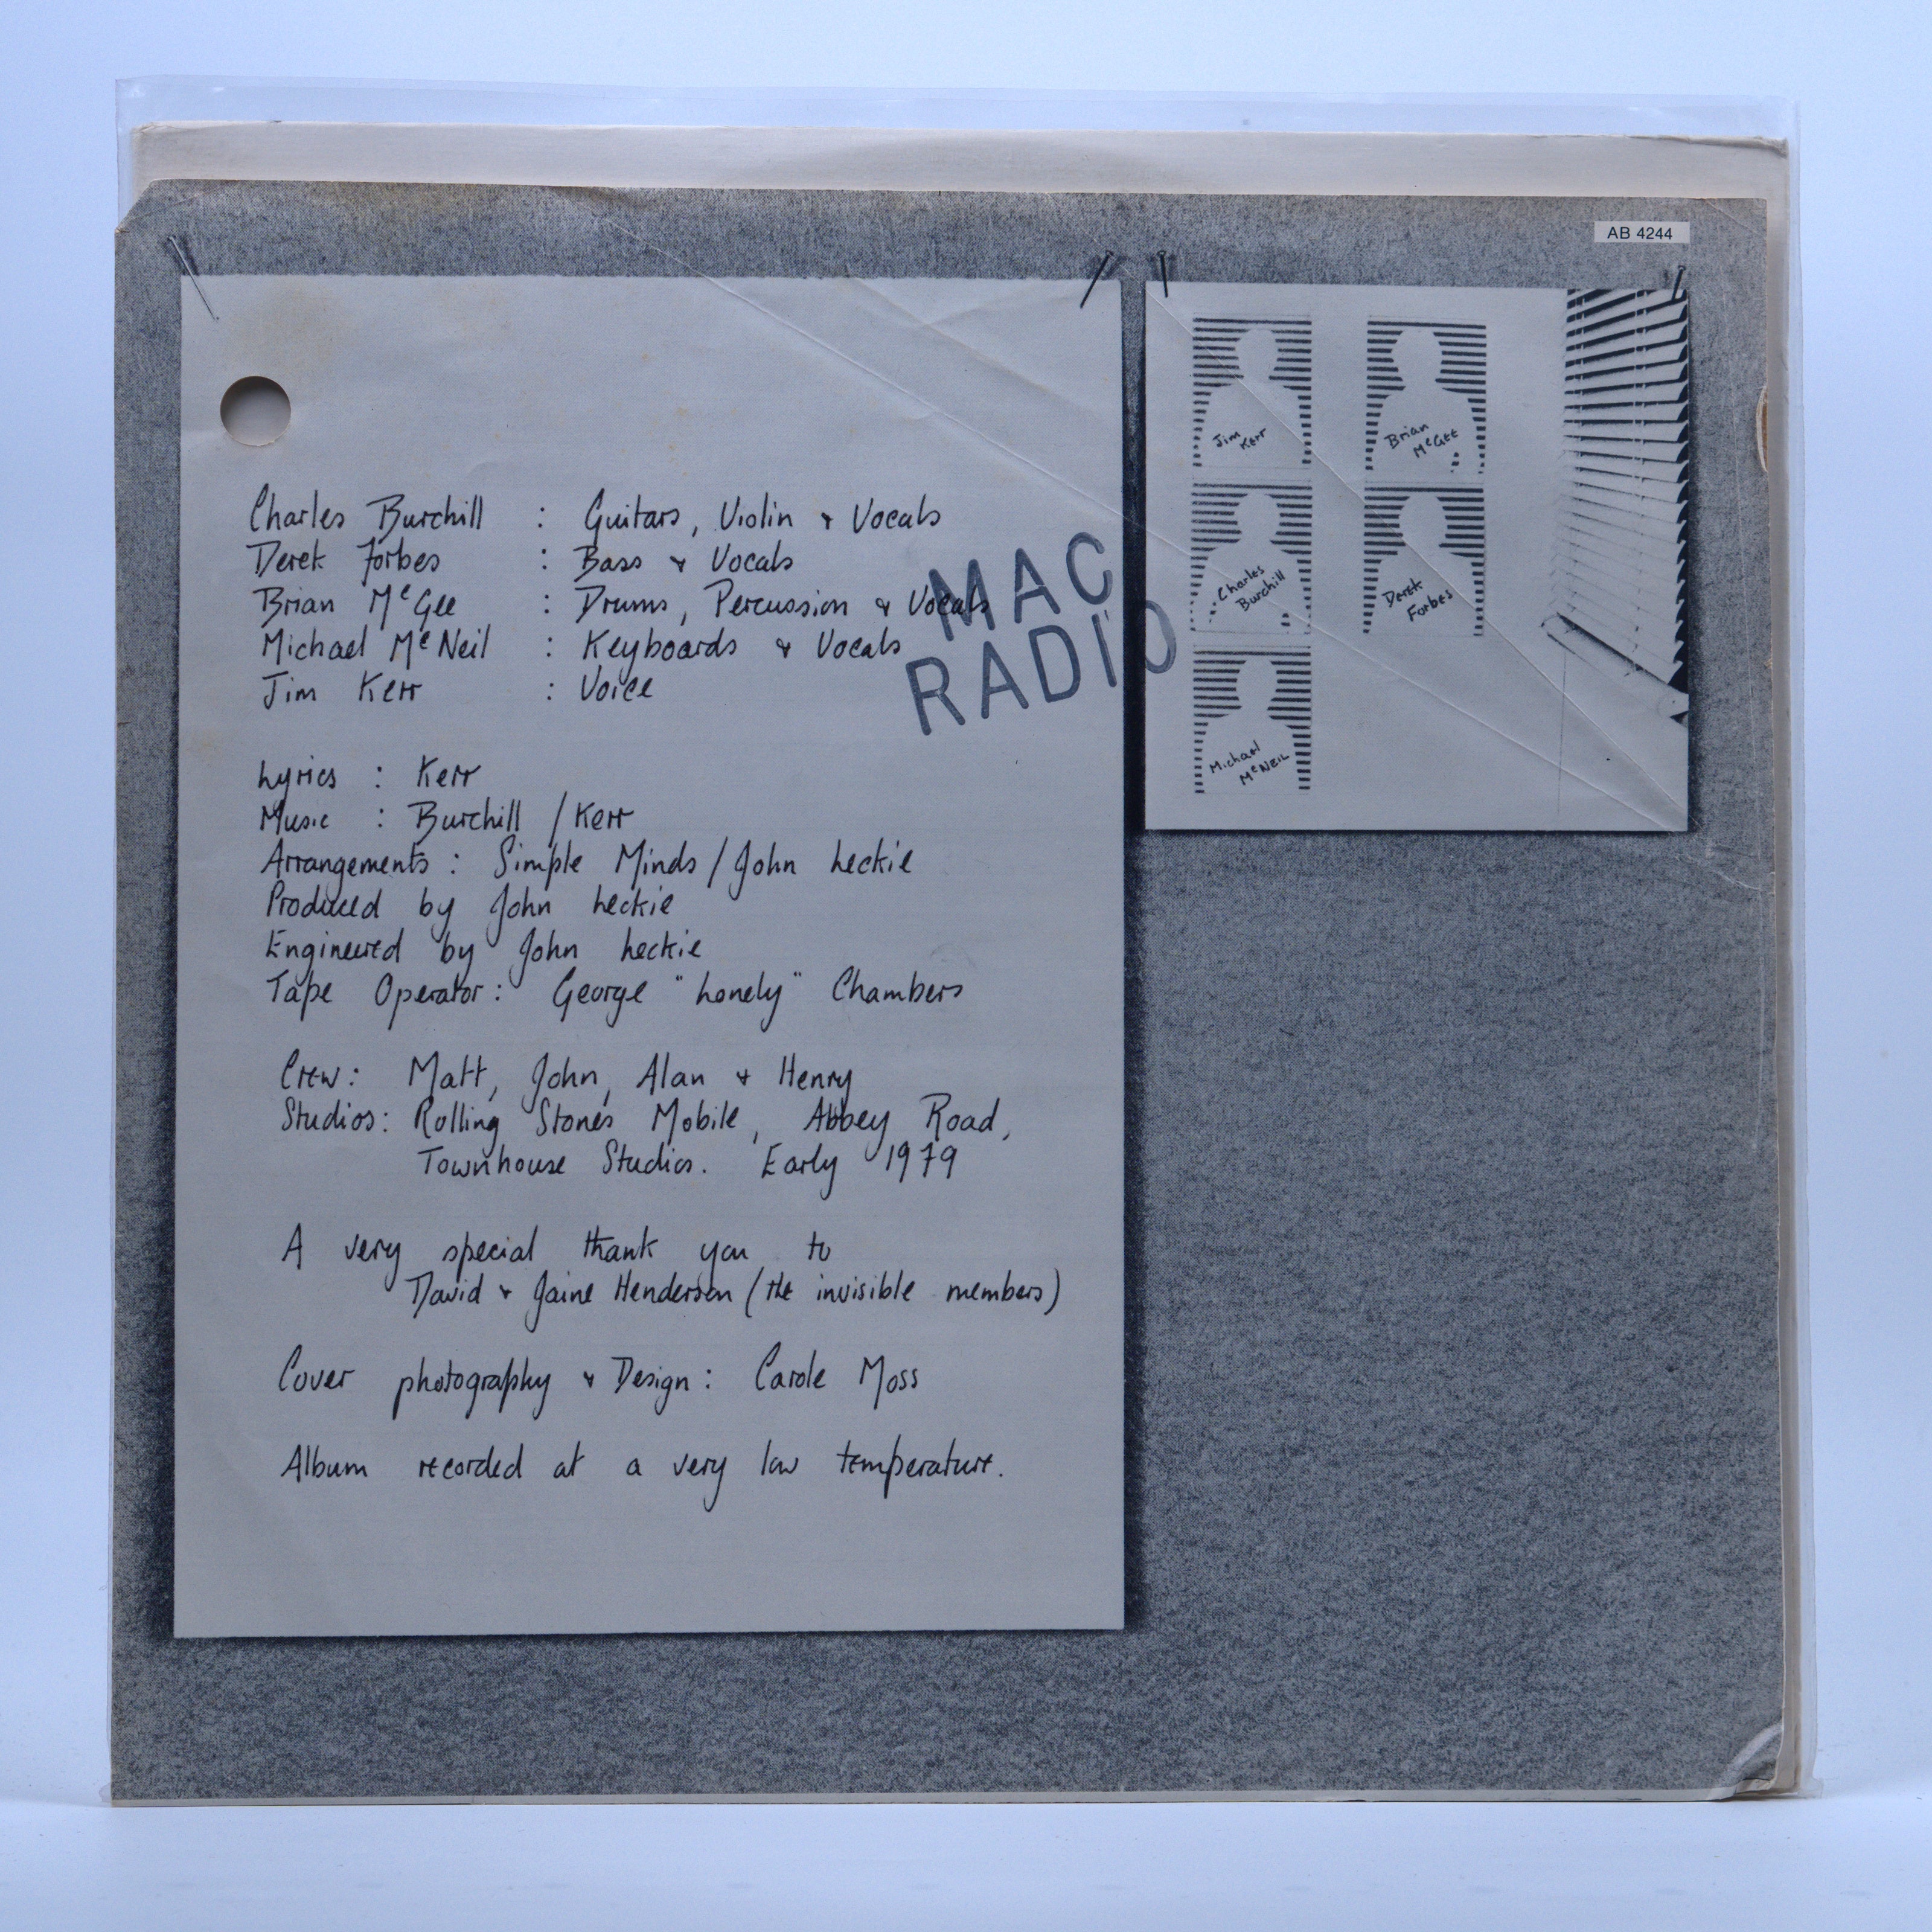 AB 4244
Charles Burchill : Guitars, Violin + Vocals
Derek Forbes : Bass + Vocals
Brian McGee : Drums, Percussion + Vocals
Michael McNeil : Keyboards + Vocals
Jim Kerr : Voice
MAC
RADIO
Lyrics : Kerr
Music : Burchill / Kerr
Arrangements : Simple Minds / John Leckie
Produced by John Leckie
Engineered by John Leckie
Tape Operator : George "Lonely" Chambers
Crew : Matt, John, Alan + Henry
Studios : Rolling Stones Mobile, Abbey Road,
Townhouse Studios. Early 1979
A very special thank you to
David + Jaine Henderson (the invisible members)
Cover photography + Design : Carole Moss
Album recorded at a very low temperature.
Jim
Kerr
Brian
McGee
Charles
Burchill
Derek
Forbes
Michael
McNeil